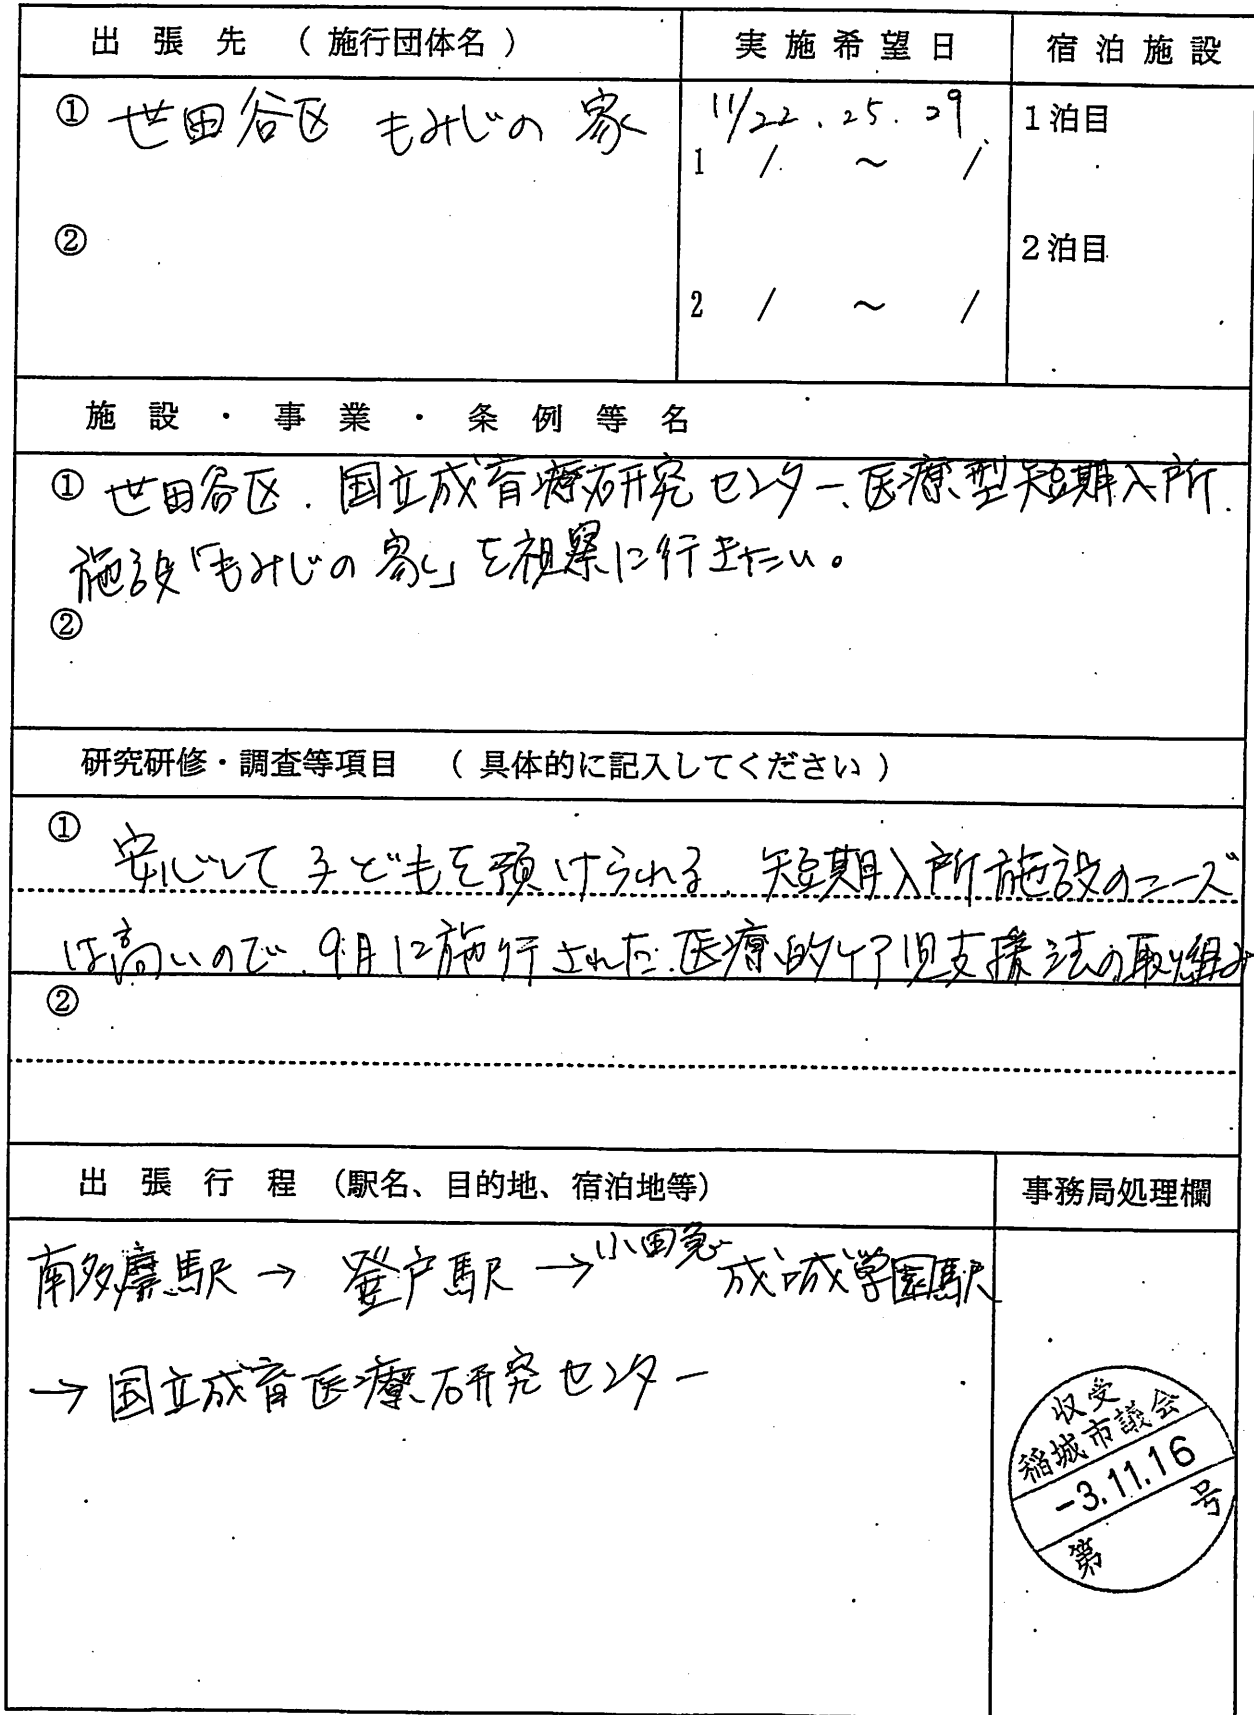 出張先 (施行団体名) 実施希望日 宿泊施設
① 世田谷区 もみじの家 11/22.25.29. 1泊目
1 / ~ /
② 2泊目
2 / ~ /
施設・事業・条例等名
① 世田谷区.国立成育療研究センター、医療型短期入所.
施設「もみじの家」を視察に行きたい。
②
研究研修・調査等項目 (具体的に記入してください)
① 安心して子どもを預けられる、短期入所施設のニーズ
は高いので、9月に施行された、医療的ケア児支援法の取り組み
②
出張行程 (駅名、目的地、宿泊地等) 事務局処理欄
南多摩駅 → 登戸駅 →小田急 成城学園駅
→ 国立成育医療研究センター
収受
稲城市議会
-3.11.16
第 号